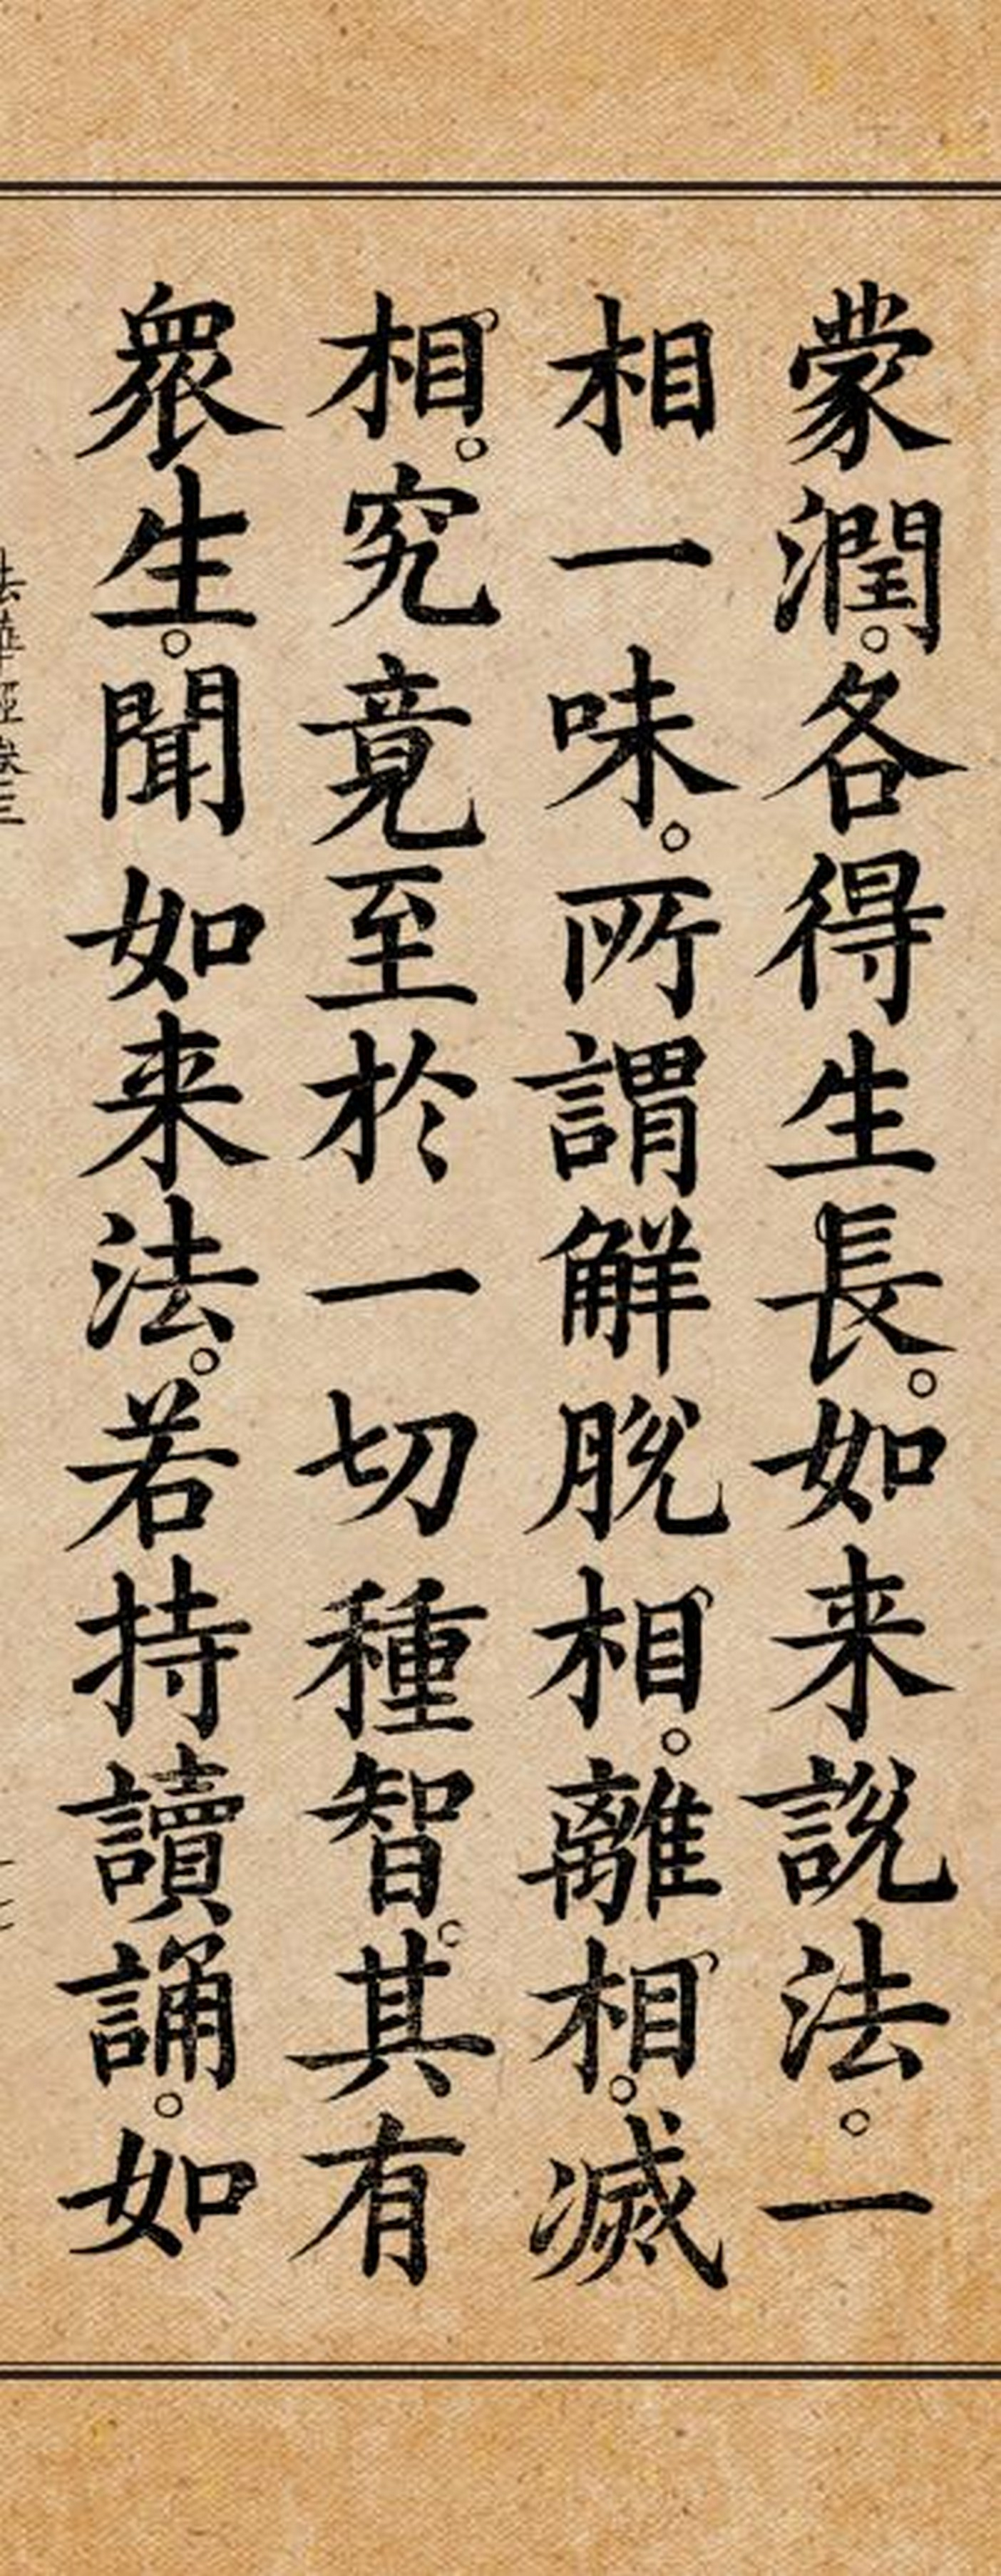 蒙潤。各得生長。如来說法。一
相一味。所謂解脫相。離相。滅
相。究竟至於一切種智。其有
衆生。聞如来法。若持讀誦。如
法華經卷三